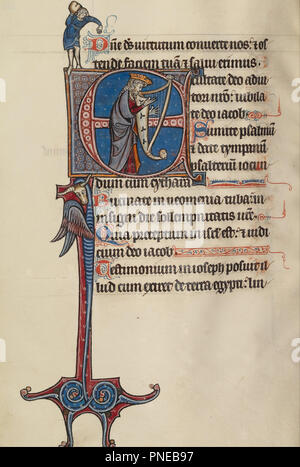 Dñe ds uirtutum conuerte nos: ⁊ os
tende faciem tuā ⁊ salui erimus
Exultate deo adiu
tori nrō: iubila
te deo iacob
Sumite psalmū
⁊ date tympanū
psalterium iocun
dum cum cythara
Bucinate in neomenia tuba: in
insigni die sollempnitatis uræ
Quia preceptum in isrl est: ⁊ iudi
cium deo iacob
Testimonium in ioseph posuit il
lud cum exiret de terra egypti: lin
alamy
Image ID: PNEB97
www.alamy.com